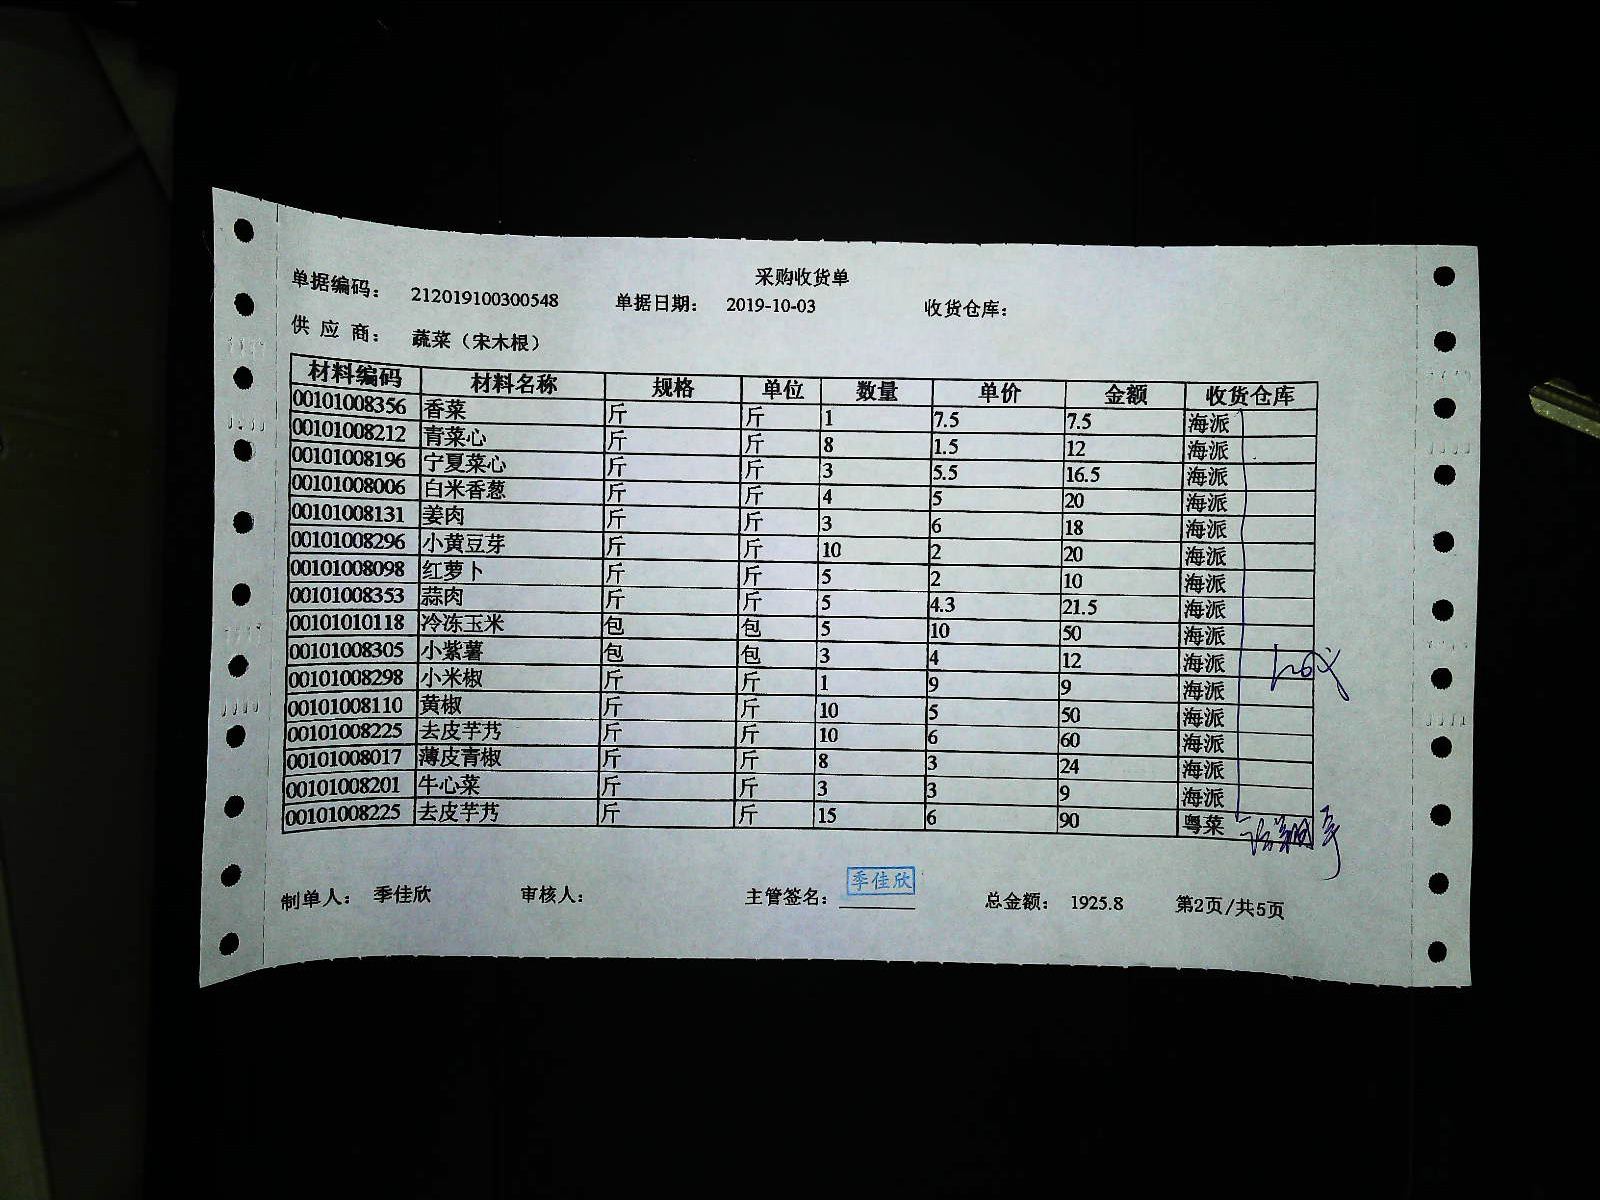 采购收货单
单据编码： 212019100300548 单据日期： 2019-10-03 收货仓库：
供 应 商： 蔬菜（宋木根）
材料编码 材料名称 规格 单位 数量 单价 金额 收货仓库
00101008356 香菜 斤 斤 1 7.5 7.5 海派
00101008212 青菜心 斤 斤 8 1.5 12 海派
00101008196 宁夏菜心 斤 斤 3 5.5 16.5 海派
00101008006 白米香葱 斤 斤 4 5 20 海派
00101008131 姜肉 斤 斤 3 6 18 海派
00101008296 小黄豆芽 斤 斤 10 2 20 海派
00101008098 红萝卜 斤 斤 5 2 10 海派
00101008353 蒜肉 斤 斤 5 4.3 21.5 海派
00101010118 冷冻玉米 包 包 5 10 50 海派
00101008305 小紫薯 包 包 3 4 12 海派
00101008298 小米椒 斤 斤 1 9 9 海派
00101008110 黄椒 斤 斤 10 5 50 海派
00101008225 去皮芋艿 斤 斤 10 6 60 海派
00101008017 薄皮青椒 斤 斤 8 3 24 海派
00101008201 牛心菜 斤 斤 3 3 9 海派
00101008225 去皮芋艿 斤 斤 15 6 90 粤菜
制单人： 季佳欣 审核人： 主管签名： 季佳欣 总金额： 1925.8 第2页/共5页